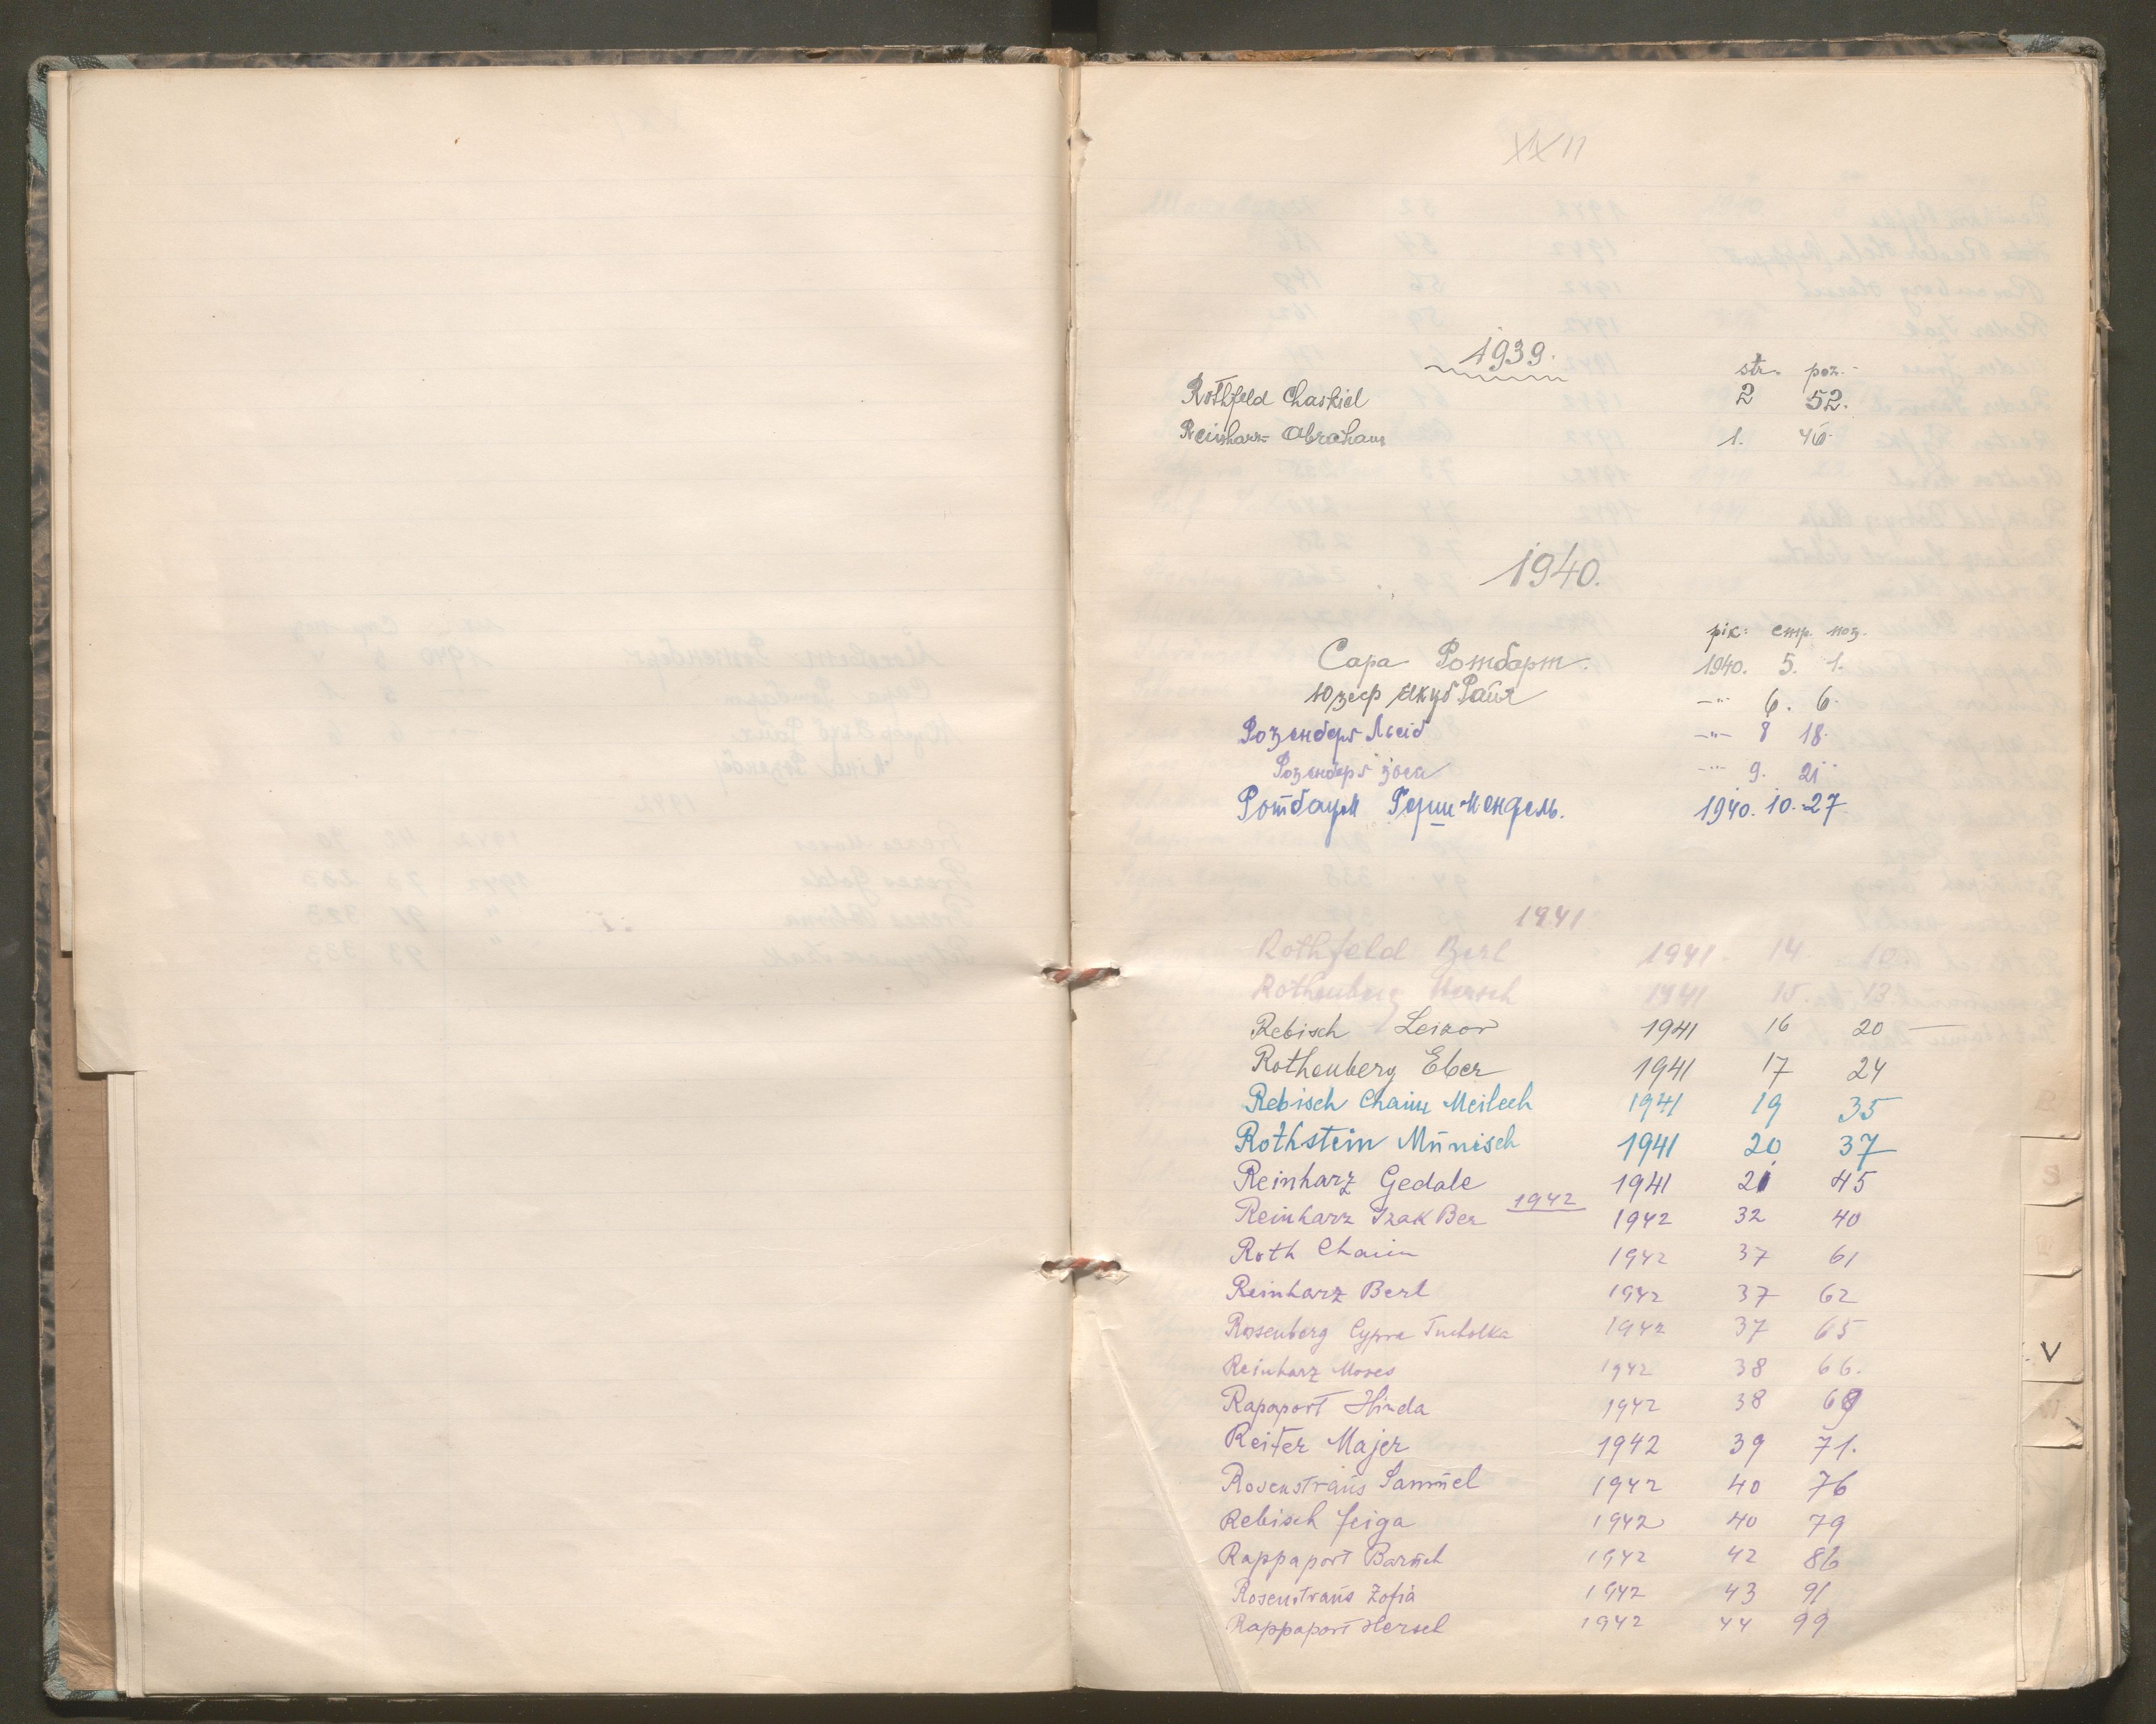 XXII
1939.
str. poz.
Rothfeld Chaskiel 2 52.
Reinharz Abraham 1. 46.
1940.
рік: стр. поз.
Сара Ротбарт. 1940. 5. 1.
Юзеф Якуб Райх -"- 6. 6.
Розенберг Лейб -"- 8 18.
Розенберг -"- 9. 21
Ротбаум Герш Мендель. 1940. 10. 27
1941
Rothfeld Berl 1941. 14. 10.
Rothenberg Hersch 1941 15. 13.
Rebisch Leizor 1941 16 20 —
Rothenberg Eber 1941 17 24
Rebisch Chaim Meilech 1941 19 35
Rothstein Münisch 1941 20 37
Reinharz Gedale 1941 21 45
1942
Reinharz Izak Ber 1942 32 40
Roth Chaim 1942 37 61
Reinharz Berl 1942 37 62
Rosenberg Cypre 1942 37 65
Reinharz Moses 1942 38 66.
Rapaport Hinda 1942 38 69
Reiter Majer 1942 39 71.
Rosenstraŭs Samŭel 1942 40 76
Rebisch Feiga 1942 40 79
Rappaport Barŭch 1942 42 86
Rosenstraŭs Zofia 1942 43 91
Rappaport Hersch 1942 44 99
S
V
W